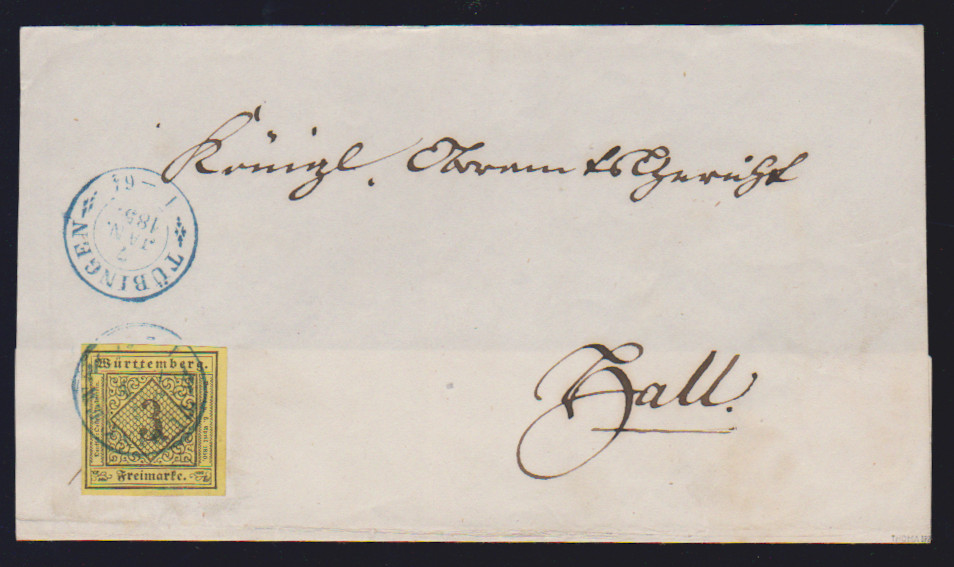 Königl. Oberamtsgericht
TÜBINGEN
7
JAN.
185.
Hall.
Württemberg.
3
Freimarke.